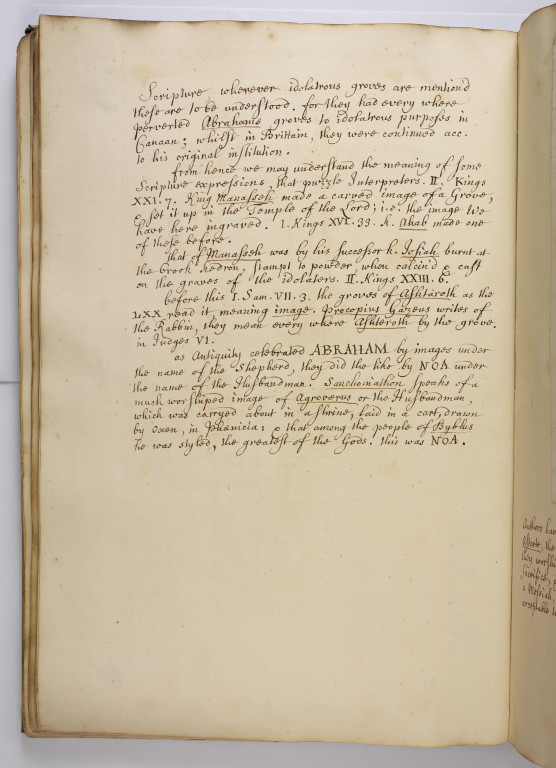 Scripture wherever idolatrous groves are mention'd
these are to be understood. for they had every where
perverted Abrahams groves to idolatrous purposes in
Canaan; whilst in Brittain, they were continued acc.
to his original institution.
from hence we may understand the meaning of some
Scripture expressions, that puzzle Interpreters. II. Kings
XXI. 7. King Manasseh made a carved image of a Grove,
& set it up in the Temple of the Lord; i.e. the image we
have here ingraved. I. Kings XVI. 33. k. Ahab made one
of these before.
that of Manasseh was by his successor k. Josiah burnt at
the brook Kedron, stampt to powder, when calcin'd & cast
on the graves of the idolaters. II. Kings XXIII. 6.
before this I. Sam. VII. 3. the groves of Ashtaroth as the
LXX read it, meaning image. Procopius Gazeus writes of
the Rabbin, they mean every where Ashteroth by the grove.
in Judges VI.
as Antiquity celebrated ABRAHAM by images under
the name of the Shepherd, they did the like by NOA under
the name of the Husbandman. Sanchoniathon speaks of a
much worshiped image of Agroverus or the Husbandman,
which was carryed about in a shrine, laid in a cart, drawn
by Oxen, in Phœnicia: & that among the people of Byblus
he was styled, the greatest of the Gods. this was NOA.
Authors hav
the
they worshi
Sacrifice,
a Messiah
acceptable